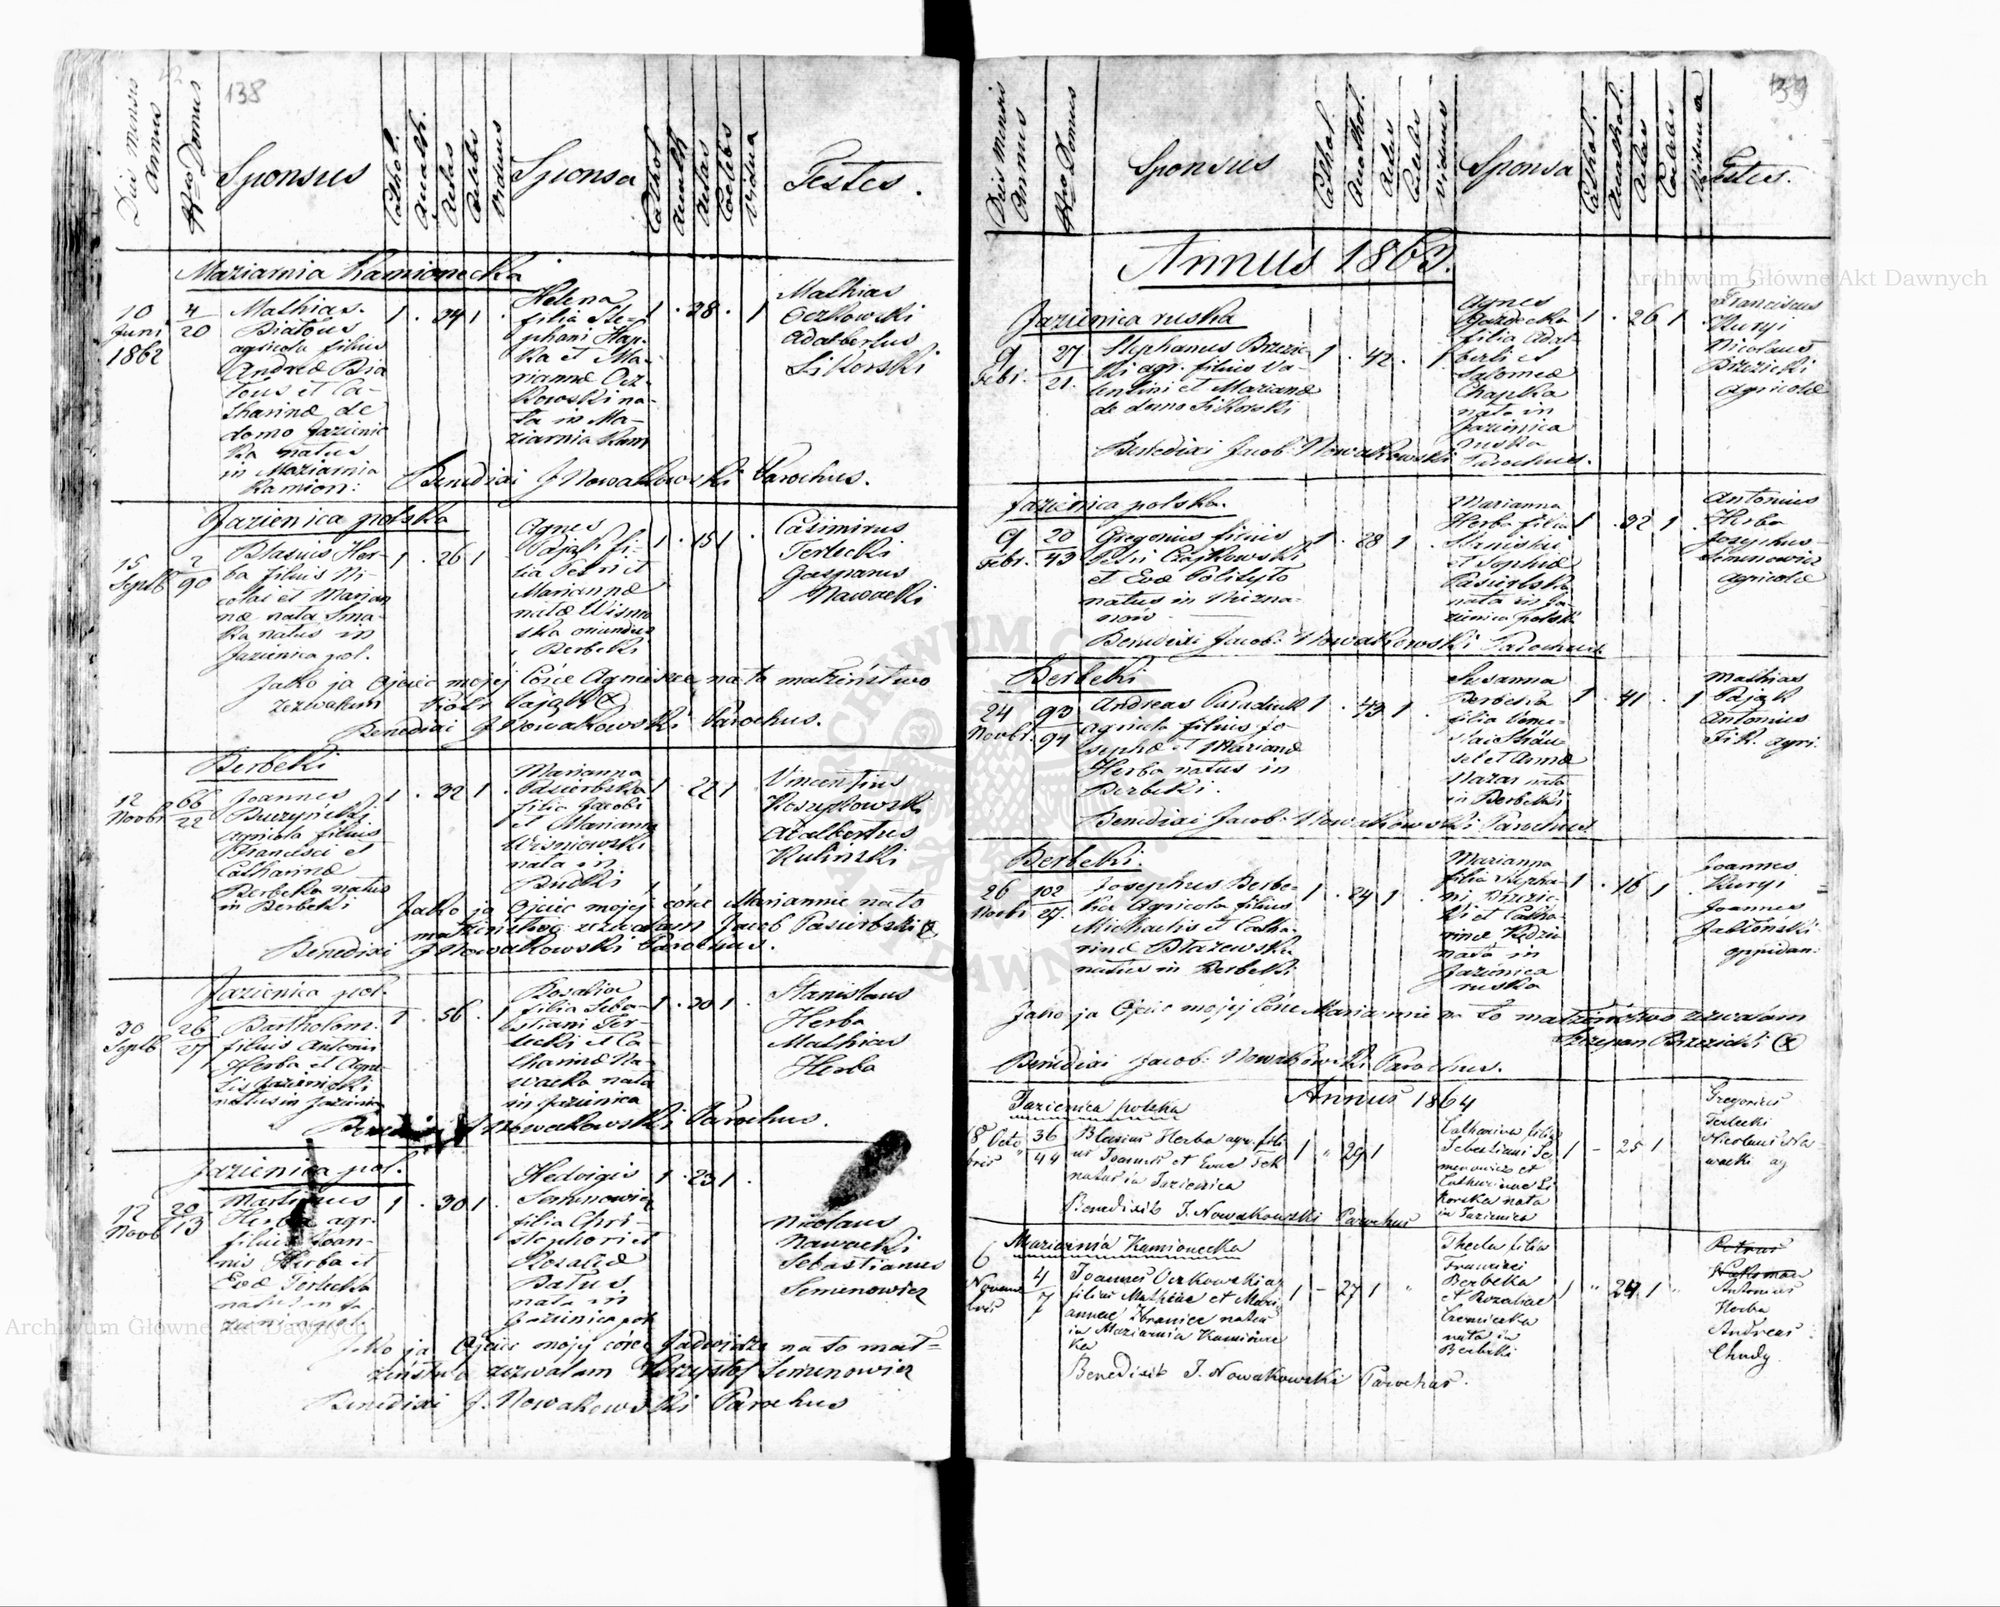 138
Dies Mensis
Annus
Nro Domus
Sponsus
Cathol.
Acath.
Aetas
Caelebs
Viduus
Sponsa
Cathol
Acath
Aetas
Coelebs
Vidua
Testes.
Maziarnia Kamionecka
10
Juni
1862
4
20
Mathias
Białous
agricola filius
Andreæ Bia
łous et Ca-
tharinæ de
domo Jazienic
ka natus
in Maziarnia
Kamion:
1 . 34 1 .
Helena
filia Ste-
phani Hap-
ka et Ma-
riannæ Ocz-
kowski na-
ta in Ma-
ziarnia Kam
1 . 28 . 1
Mathias
Oczkowski
Adalbertus
Sikorski
Benedixi J Nowakowski Parochus.
Jazienica polska
15
Septb
2
90
Blasius Her-
ba filius Ni-
colai et Marian
næ nata Sma-
ka natus in
Jazienica pol.
1 . 26 1
Agnes
Pająk fi-
lia Petri et
Mariannæ
natæ Wisnio
ska oriundus
Berbeki
1 . 15 1 .
Casimirus
Terlecki
Gasparus
Nawacki
Jako ja Ojciec mojej Córce Agnieszce na to małżeństwo
zezwalam Piotr Pająk (x)
Benedixi J Nowakowski Parochus.
Berbeki
12
Novbr
66
22
Joannes
Buczyński
agricola filius
Francisci et
Catharinæ
Berbeka natus
in Berbeki
1 . 32 1 .
Marianna
Pasierbska
filia Jacobi
et Marianna
Wisniowski
nata in
Budki
1 . 22 1
Vincentius
Koszykowski
Adalbertus
Kulinski
Jako ja Ojciec mojej córce Mariannie na to
małżeństwo zezwalam Jacob Pasierbski (x)
Benedixi J Nowakowski Parochus.
Jazienica pol.
30
Septb
26
27
Bartholom.
filius Antonii
Herba et Agne-
tis Jazienicki
natus in Jazienica
1 . 56 . 1
Rosalia
filia Seba-
stiani Ter-
lecki et Ca-
tharinæ Na-
wacka nata
in Jazienica
1 . 30 1 .
Stanislaus
Herba
Mathias
Herba
Benedixi J Nowakowski Parochus.
Jazienica pol.
12
Novb
20
13
Martinus
Herba agr.
filius Joan-
nis Herba et
Evæ Terlecka
natus in Ja
zienica pol.
1 . 30 1 .
Hedvigis
Semenowicz
filia Chri-
stophori et
Rosaliæ
Batus
nata in
Jazienica pol.
1 . 23 1 .
Nicolaus
Nawacki
Sebastianus
Semenowicz
Jako ja Ojciec mojej córce Jadwidze na to mał-
żeństwo zezwalam Krzysztof Semenowicz
Benedixi J. Nowakowski Parochus
139
Dies Mensis
Annus
Nro Domus
Sponsus
Cathol.
Acathol.
Aetas
Caelebs
Viduus
Sponsa
Cathol.
Acathol.
Aetas
Caelebs
Vidua
Testes.
Annus 1863.
Jazienica ruska
9
Febr.
27
21
Stephanus Brzezic-
ki agr. filius Va-
lentini et Mariannæ
de domo Sikorski
1 . 42 . 1
Agnes
filia Adal-
berti et
Salomeæ
Chapka
nata in
Jazienica
ruska
1 . 26 1 .
Franciscus
Kuryj
Nicolaus
Brzezicki
agricolæ
Benedixi Jacob: Nowakowski Parochus.
Jazienica polska.
9
Febr.
20
43
Gregorius filius
Petri Czajkowski
et Evæ Polityło
natus in
1 . 28 1 .
Marianna
Herba filia
Stanislai
et Sophiæ
Pasierbska
nata in Ja-
zienica polsk:
1 . 32 1 .
Antonius
Herba
Josephus
Semenowicz
agricolæ
Benedixi Jacob: Nowakowski Parochus
Berbeki
24
Novbr.
93
94
Andreas Paradiuk
agricola filius Jo-
sephi et Mariannæ
Herba natus in
Berbeki.
1 . 43 1 .
Susanna
Berbecka
filia
et Annæ
Mazar nata
in Berbeki
1 . 41 . 1
Mathias
Pająk
Antonius
Fik. agri.
Benedixi Jacob: Nowakowski Parochus
Berbeki.
26
Novbr
102
27.
Josephus Berbe-
ka Agricola filius
Michaelis et Catha-
rinæ Błazewska
natus in Berbeki
1 . 24 1 .
Marianna
filia Stepha-
ni Brzezic-
ki et Catha-
rinæ
nata in
Jazienica
ruska
1 . 16 1 .
Joannes
Kuryj
Joannes
Jabłoński
oppidan:
Jako ja Ojciec mojej Córce Mariannie na to małżeństwo zezwalam
Szczepan Brzezicki (x)
Benedixi Jacob: Nowakowski Parochus.
Annus 1864
Jazienica polska
18 Octo
bris
36
44
Blasius Herba agr. fili
us Joannis et Evae Fek
natus in Jazienica
1 " 29 1
Catharina filia
Sebastiani Se
menowicz et
Catharinae Si
korska nata
in Jazienica
1 - 25 1
Gregorius
Terlecki
Nicolaus Na-
wacki ag
Benedixit J. Nowakowski Parochus
Maziarnia Kamionecka
6
Novem
bris
4
7
Joannes Oczkowski ag
filius Mathiae et Mari
annae Zbranica natus
in Maziarnia Kamionec
ka
1 - 27 1 "
Thecla filia
Francisci
Berbeka
et Rozaliae
Czernicka
nata in
Berbeki
1 " 24 1 "
Petrus
Antonius
Herba
Andreas
Chudy.
Benedixit J. Nowakowski Parochus.
Archiwum Główne Akt Dawnych
Archiwum Główne Akt Dawnych